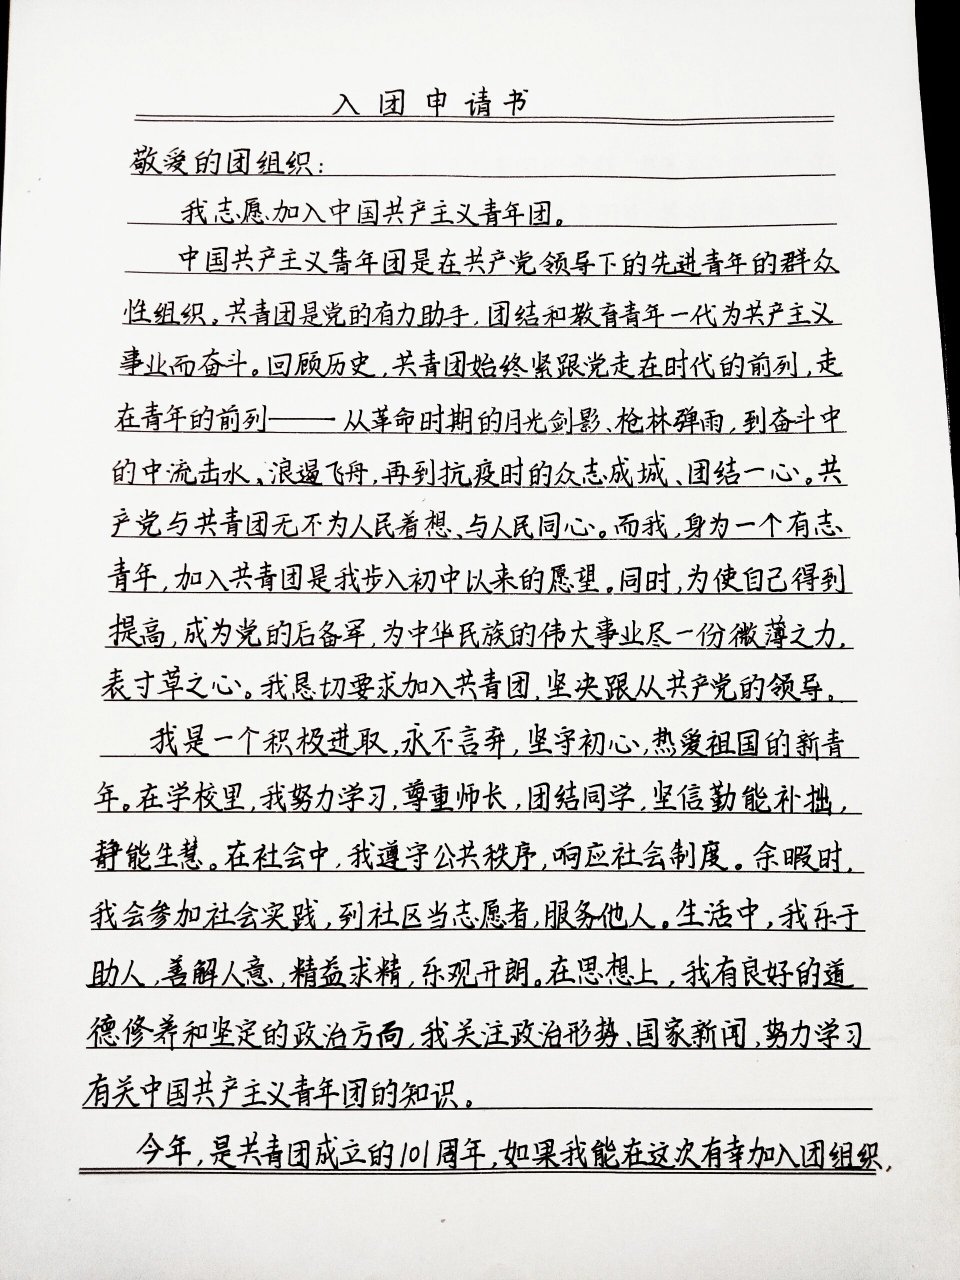 入团申请书
敬爱的团组织：
我志愿加入中国共产主义青年团。
中国共产主义青年团是在共产党领导下的先进青年的群众
性组织。共青团是党的有力助手，团结和教育青年一代为共产主义
事业而奋斗。回顾历史，共青团始终紧跟党走在时代的前列，走
在青年的前列——从革命时期的月光剑影、枪林弹雨，到奋斗中
的中流击水、浪遏飞舟，再到抗疫时的众志成城、团结一心。共
产党与共青团无不为人民着想、与人民同心。而我，身为一个有志
青年，加入共青团是我步入初中以来的愿望。同时，为使自己得到
提高，成为党的后备军，为中华民族的伟大事业尽一份微薄之力，
表寸草之心。我恳切要求加入共青团，坚决跟从共产党的领导。
我是一个积极进取，永不言弃，坚守初心，热爱祖国的新青
年。在学校里，我努力学习，尊重师长，团结同学，坚信勤能补拙，
静能生慧。在社会中，我遵守公共秩序，响应社会制度。余暇时，
我会参加社会实践，到社区当志愿者，服务他人。生活中，我乐于
助人，善解人意，精益求精，乐观开朗。在思想上，我有良好的道
德修养和坚定的政治方向，我关注政治形势、国家新闻，努力学习
有关中国共产主义青年团的知识。
今年，是共青团成立的101周年，如果我能在这次有幸加入团组织，